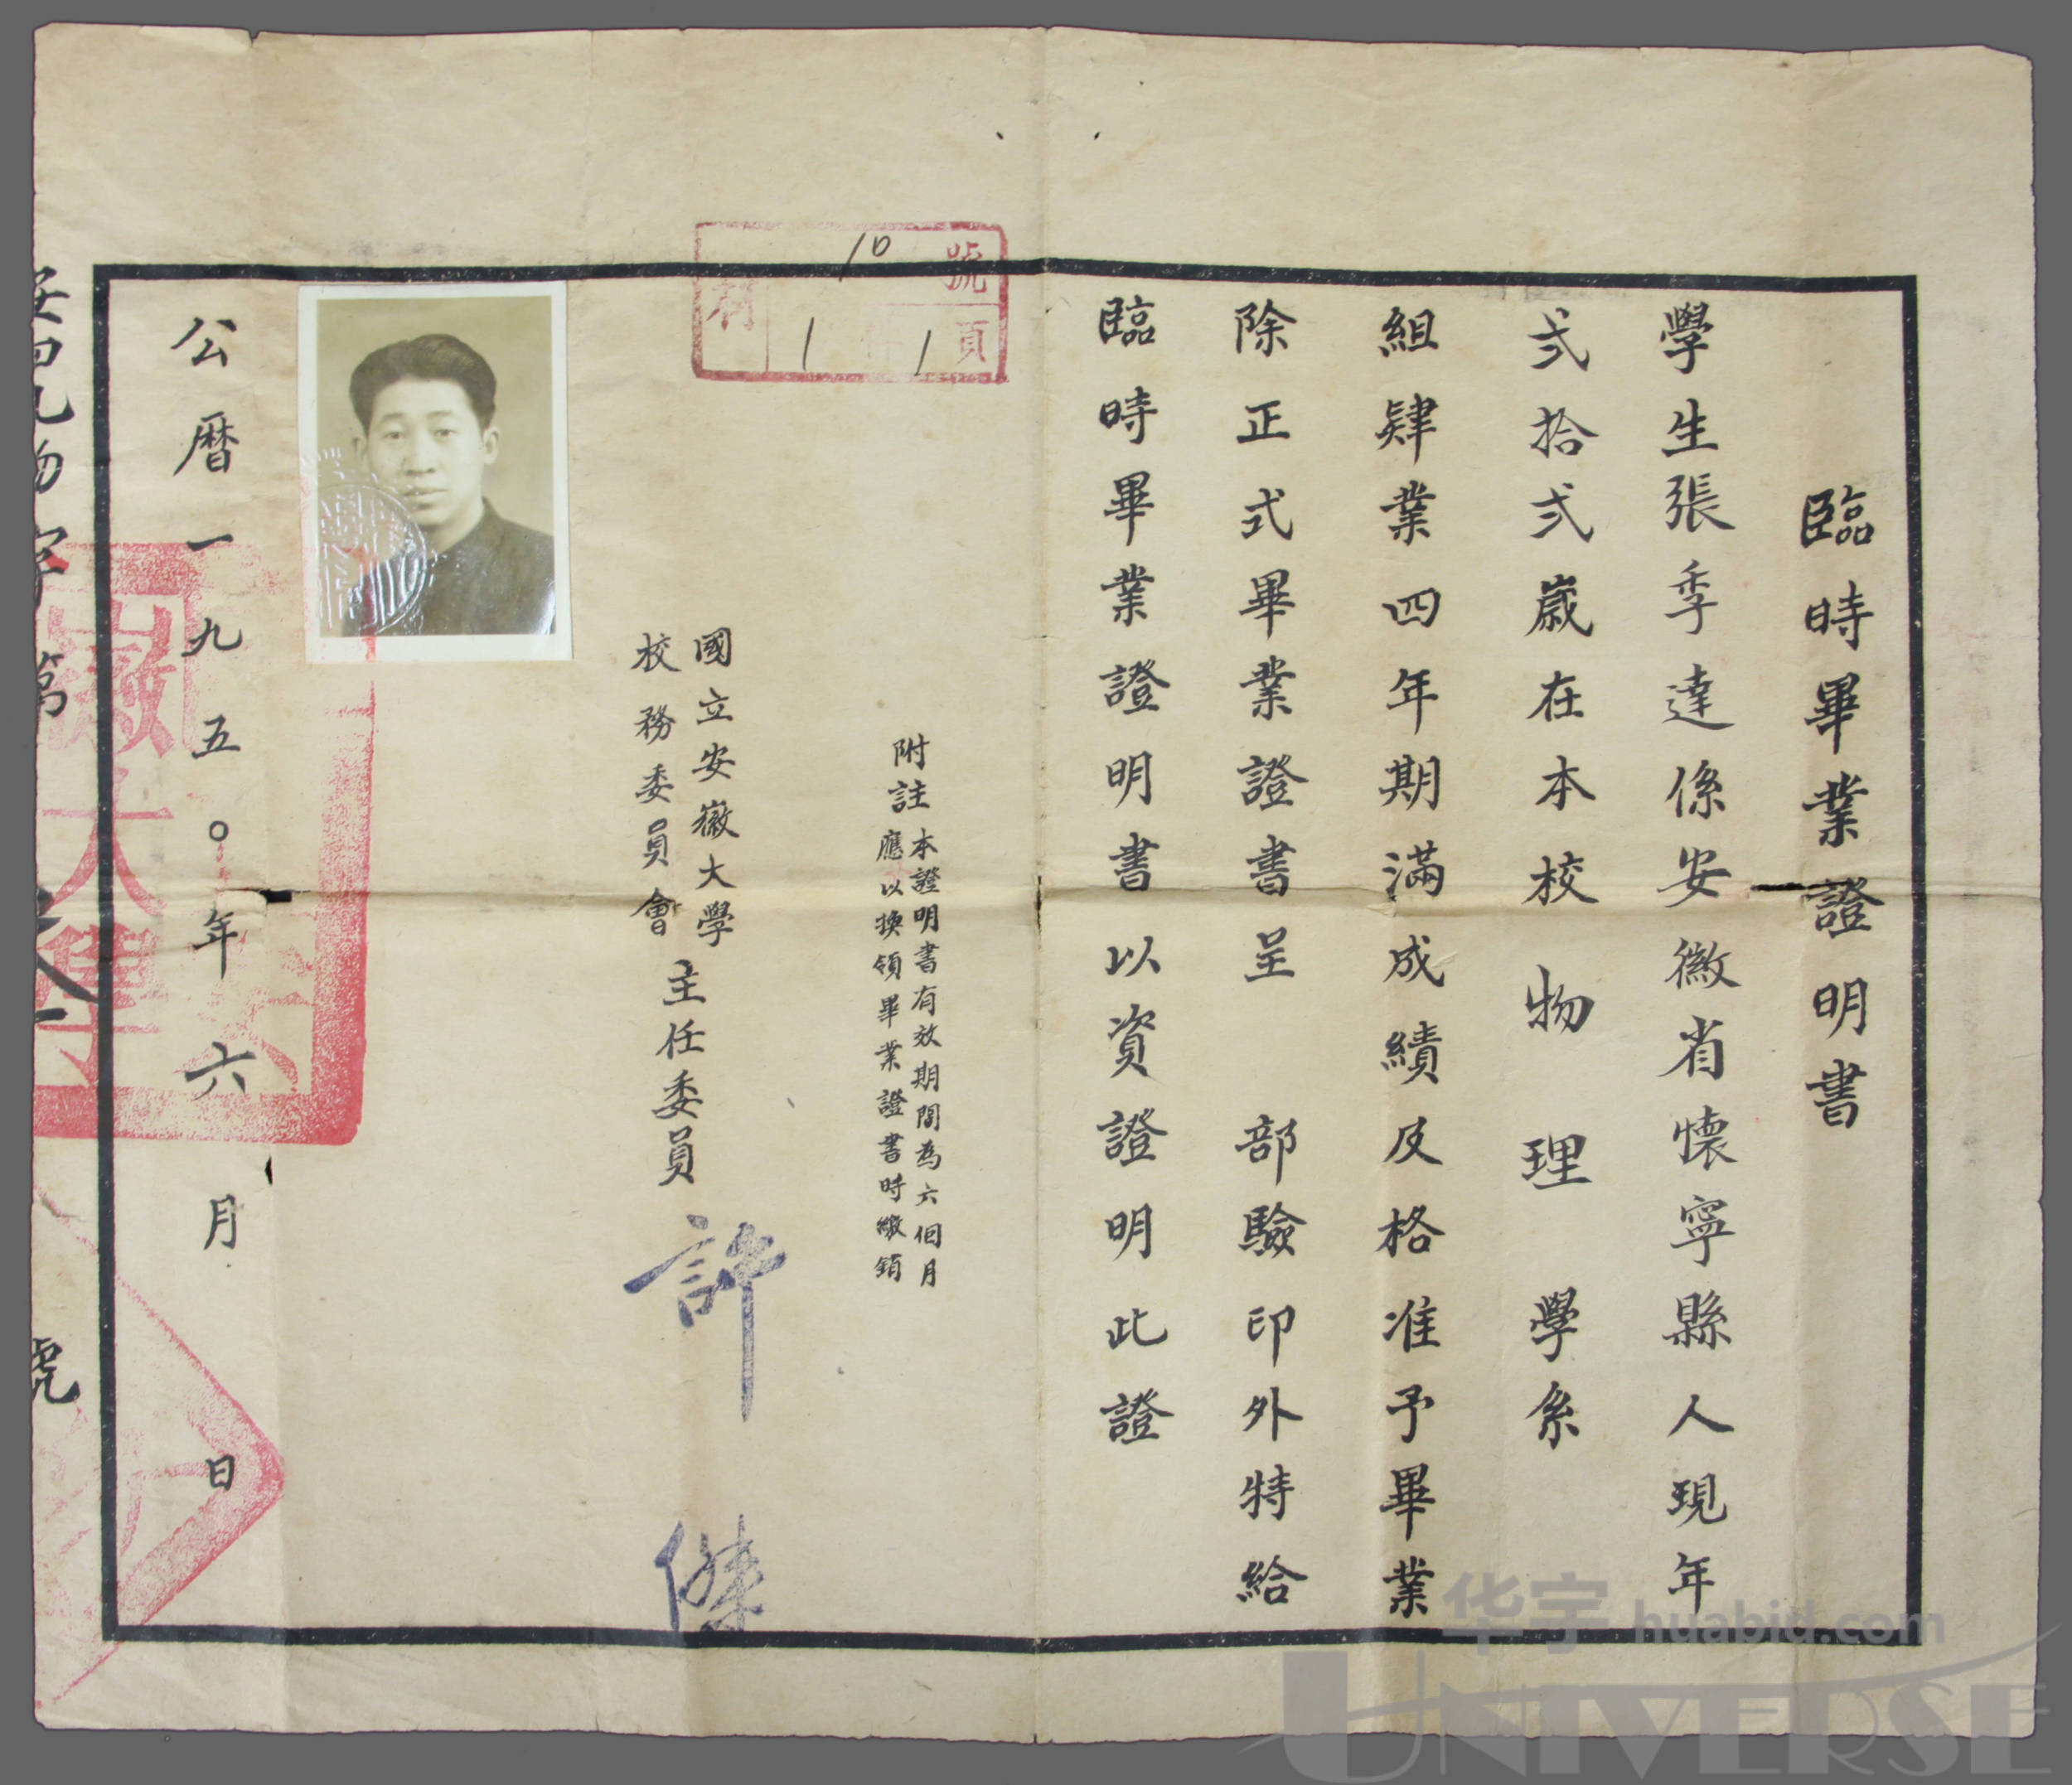 臨時畢業證明書
學生張季達係安徽省懷寧縣人現年
弍拾弍歲在本校物理學系
組肄業四年期滿成績及格准予畢業
除正式畢業證書呈 部驗印外特給
臨時畢業證明書以資證明此證
附註
本證明書有效期間為六個月
應以換領畢業證書時繳銷
號
10
頁
1
1
國立安徽大學
校務委員會
主任委員
許傑
公曆一九五〇年六月 日
徽
大學
第
號
华宇 huabid.com
UNIVERSE